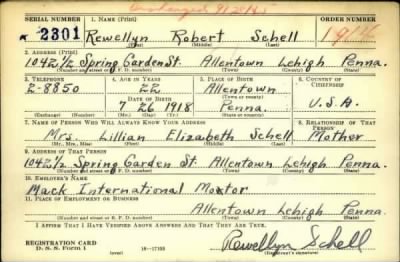 SERIAL NUMBER 1. NAME (Print) ORDER NUMBER
2301 Rewellyn Robert Schell
(First) (Middle) (Last)
2. ADDRESS (Print)
1042½ Spring Garden St. Allentown Lehigh Penna.
(Number and street or R. F. D. number) (Town) (County) (State)
3. TELEPHONE 4. AGE IN YEARS 5. PLACE OF BIRTH 6. COUNTRY OF CITIZENSHIP
2-8850 22 Allentown
DATE OF BIRTH (Town or county)
7 26 1918 Penna. U.S.A.
(Exchange) (Number) (Mo.) (Day) (Yr.) (State or country)
7. NAME OF PERSON WHO WILL ALWAYS KNOW YOUR ADDRESS 8. RELATIONSHIP OF THAT PERSON
Mrs. Lillian Elizabeth Schell Mother
(Mr., Mrs., Miss) (First) (Middle) (Last)
9. ADDRESS OF THAT PERSON
1042½ Spring Garden St. Allentown Lehigh Penna.
(Number and street or R. F. D. number) (Town) (County) (State)
10. EMPLOYER'S NAME
Mack International Motor
11. PLACE OF EMPLOYMENT OR BUSINESS
Allentown Lehigh Penna.
(Number and street or R. F. D. number) (Town) (County) (State)
I AFFIRM THAT I HAVE VERIFIED ABOVE ANSWERS AND THAT THEY ARE TRUE.
REGISTRATION CARD
D. S. S. Form 1 16—17105 Rewellyn Schell
(Registrant's signature)